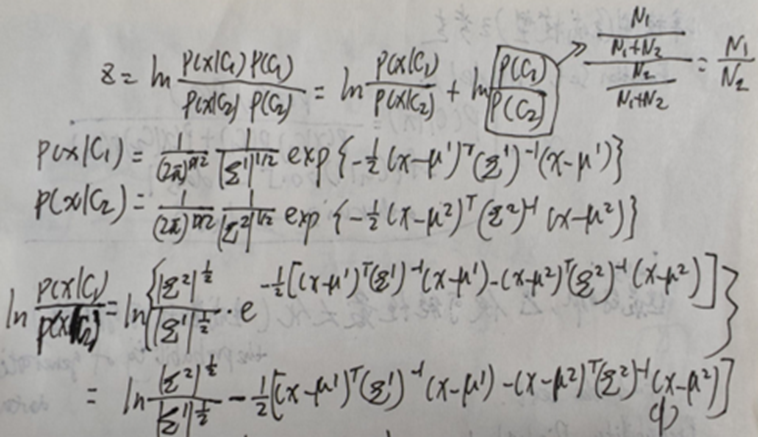 z = ln P(x|C₁) P(C₁) / P(x|C₂) P(C₂) = ln P(x|C₁) / P(x|C₂) + ln P(C₁) / P(C₂) → (N₁ / N₁+N₂) / (N₂ / N₁+N₂) = N₁ / N₂
P(x|C₁) = 1/(2π)^{D/2} 1/|Σ¹|^{1/2} exp{-½(x-μ¹)ᵀ(Σ¹)⁻¹(x-μ¹)}
P(x|C₂) = 1/(2π)^{D/2} 1/|Σ²|^{1/2} exp{-½(x-μ²)ᵀ(Σ²)⁻¹(x-μ²)}
ln P(x|C₁) / P(x|C₂) = ln{ |Σ²|^{½} / |Σ¹|^{½} · e^{-½[(x-μ¹)ᵀ(Σ¹)⁻¹(x-μ¹)-(x-μ²)ᵀ(Σ²)⁻¹(x-μ²)]} }
= ln |Σ²|^{½} / |Σ¹|^{½} - ½[(x-μ¹)ᵀ(Σ¹)⁻¹(x-μ¹) - (x-μ²)ᵀ(Σ²)⁻¹(x-μ²)]